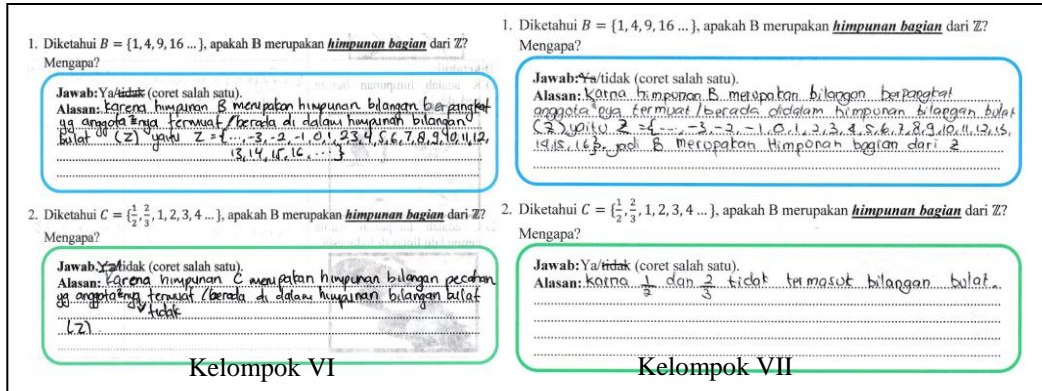 1. Diketahui B = {1, 4, 9, 16 ... }, apakah B merupakan himpunan bagian dari ℤ?
Mengapa?
Jawab: Ya/tidak (coret salah satu).
Alasan: Karena himpunan B merupakan himpunan bilangan berpangkat
yg anggota²nya termuat /berada di dalam himpunan bilangan
bulat (Z) yaitu Z = {..., -3, -2, -1, 0, 1, 2, 3, 4, 5, 6, 7, 8, 9, 10, 11, 12,
13, 14, 15, 16, ...}
2. Diketahui C = {1/2, 2/3, 1, 2, 3, 4 ... }, apakah B merupakan himpunan bagian dari ℤ?
Mengapa?
Jawab: Ya/tidak (coret salah satu).
Alasan: Karena himpunan C merupakan himpunan bilangan pecahan
yg anggota²nya termuat (berada di dalam himpunan bilangan bulat
tidak
(Z)
Kelompok VI
1. Diketahui B = {1, 4, 9, 16 ... }, apakah B merupakan himpunan bagian dari ℤ?
Mengapa?
Jawab: Ya/tidak (coret salah satu).
Alasan: Karna himpunan B merupakan bilangan berpangkat
anggota²nya termuat /berada didalam himpunan bilangan bulat
(Z) yaitu Z = {..., -3, -2, -1, 0, 1, 2, 3, 4, 5, 6, 7, 8, 9, 10, 11, 12, 13,
14, 15, 16}. jadi B merupakan Himpunan bagian dari Z
2. Diketahui C = {1/2, 2/3, 1, 2, 3, 4 ... }, apakah B merupakan himpunan bagian dari ℤ?
Mengapa?
Jawab: Ya/tidak (coret salah satu).
Alasan: Karna 1/2 dan 2/3 tidak termasuk bilangan bulat.
Kelompok VII